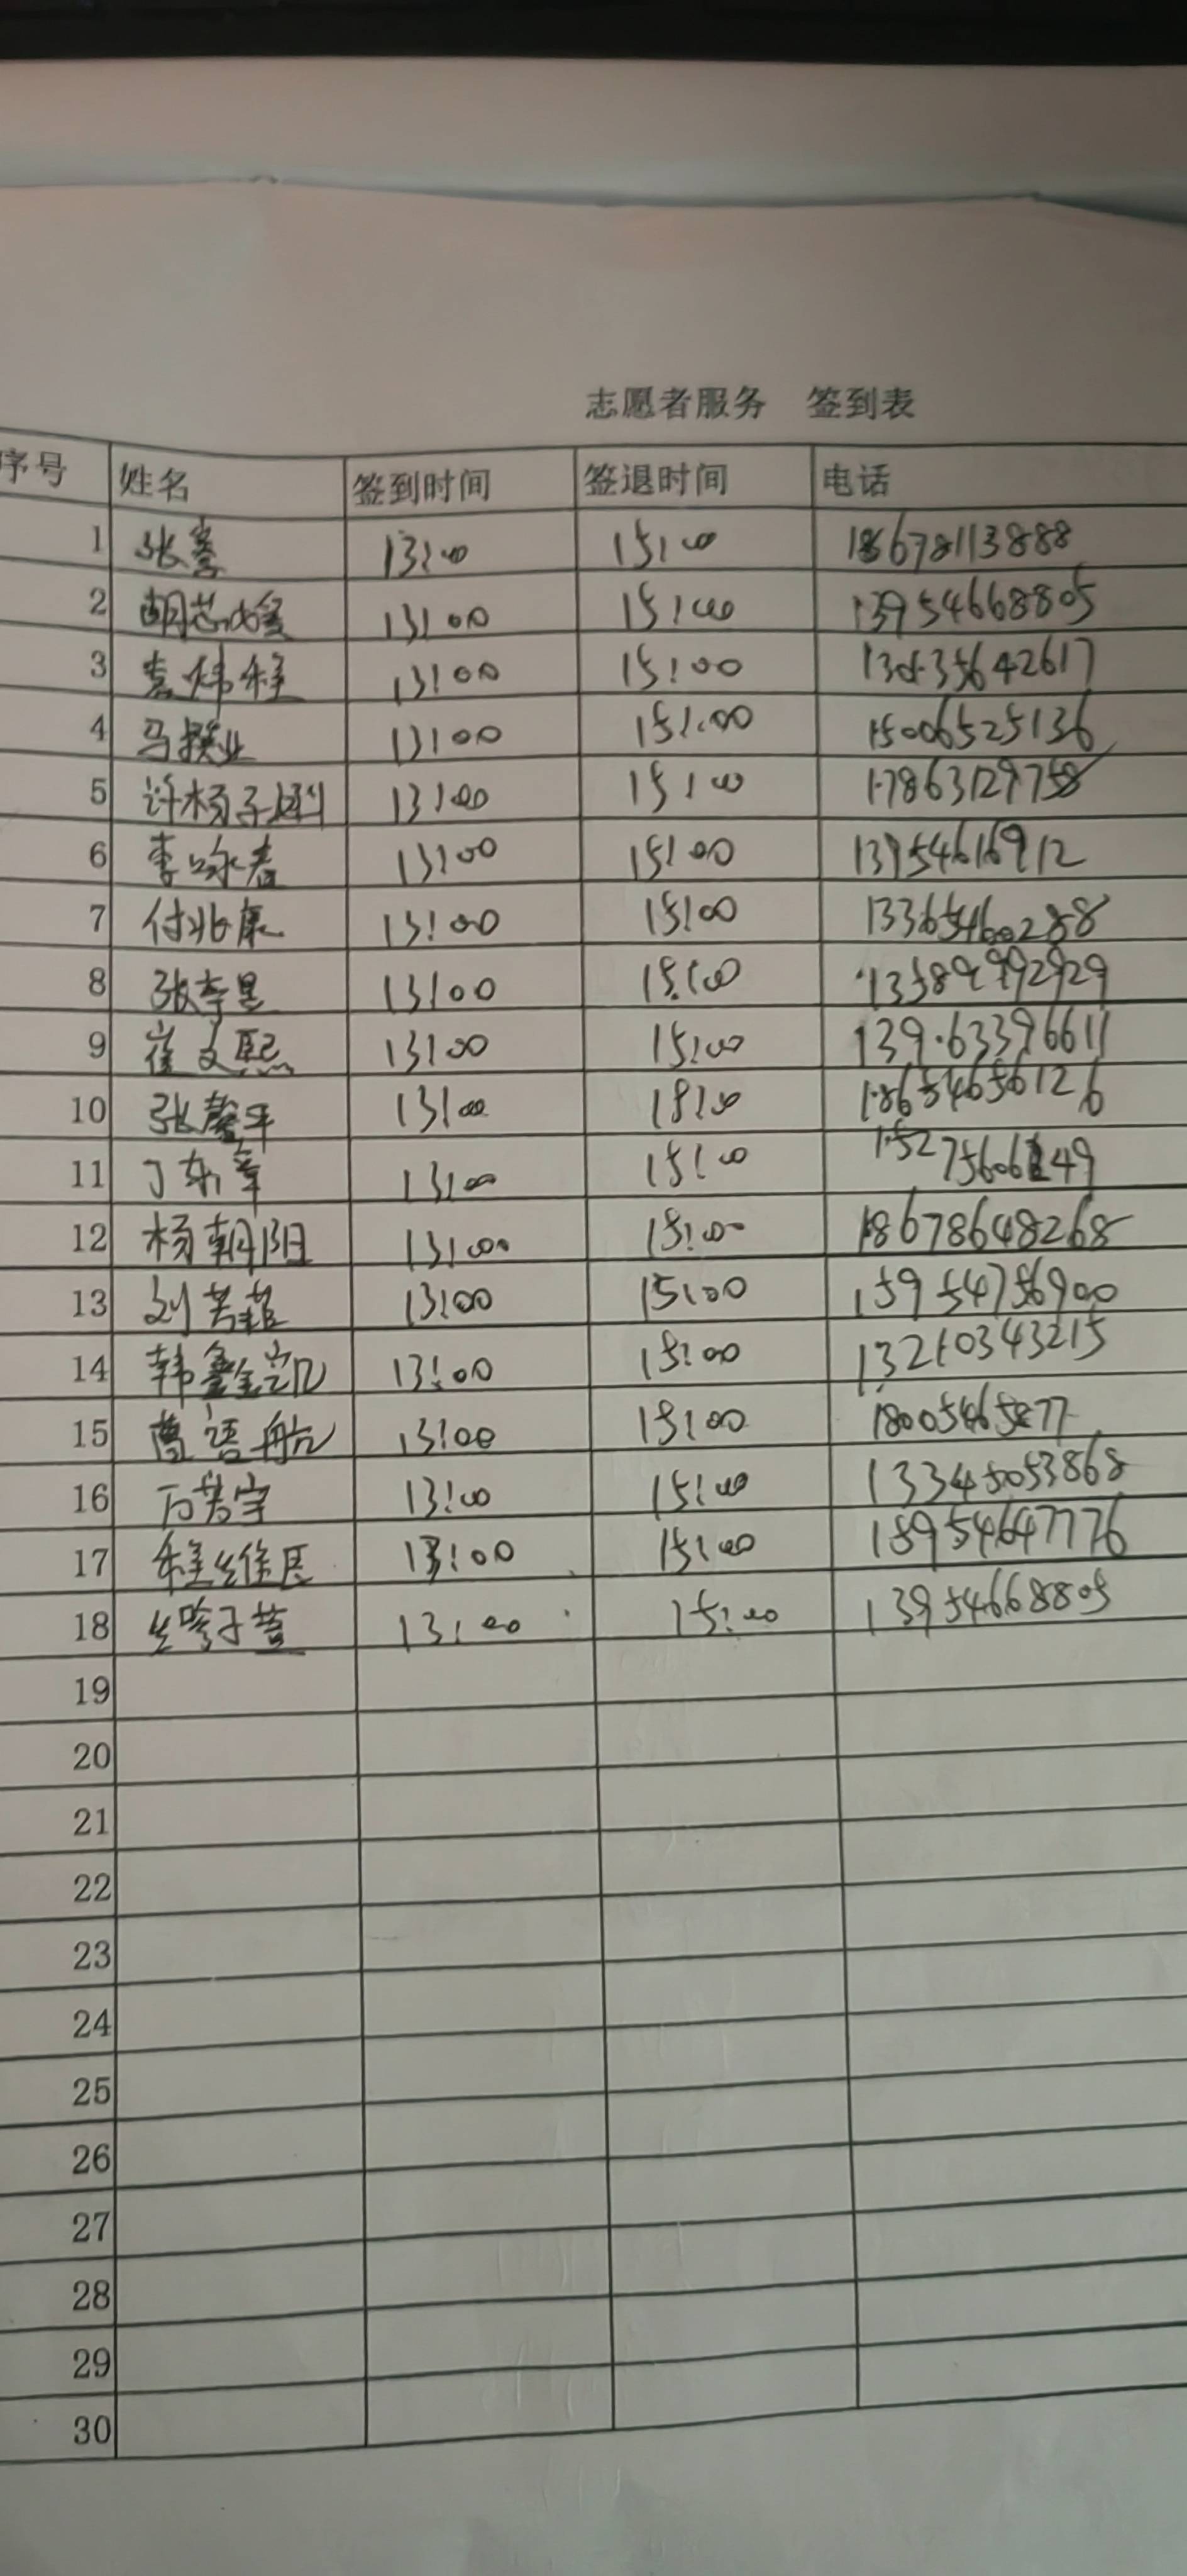 志愿者服务 签到表
序号 姓名 签到时间 签退时间 电话
1 张骞 13:00 15:00 18678113888
2 胡芯 13:00 15:00 13954668805
3 袁炜程 13:00 15:00 130535642617
4 马搂业 13:00 15:00 15006525136
5 许杨子 13:00 15:00 17863129758
6 李咏春 13:00 15:00 13954616912
7 付兆康 13:00 15:00 13365460288
8 张李昱 13:00 15:00 13589992929
9 崔文熙 13:00 15:00 13963396611
10 张馨平 13:00 15:00 18654656126
11 丁东章 13:00 15:00
12 杨朝阳 13:00 15:00 18678648268
13 刘芳菲 13:00 15:00 15954756900
14 韩鑫凯 13:00 15:00 13210343215
15 语航 13:00 15:00 18005465877
16 万芳宇 13:00 15:00 13345053868
17 程维民 13:00 15:00 18954647776
18 子萱 13:00 15:00 13954668805
19
20
21
22
23
24
25
26
27
28
29
30